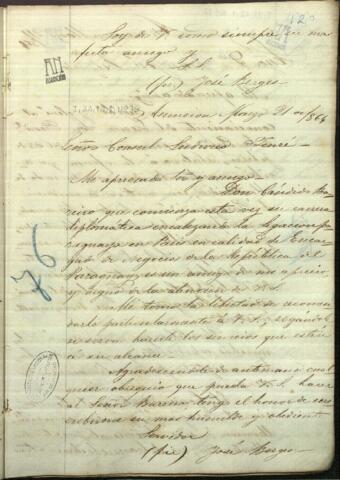 Soy de V. como siempre su mas
afecto amigo y
S. S.
(fir) José Berges
Asuncion Mayo 21 de 1864
Señor Consul Ludovico Tenré
Mi apreciado Sor y amigo
Don Cándido Ba-
reiro que comienza esta vez su carrera
diplomatica encabezando la legacion pa-
raguaya en Paris en calidad de Encar-
gado de Negocios de la República del
Paraguay, es un amigo de mi aprecio
y digno de la atencion de V. S.
Me tomo la libertad de recomen-
darlo particularmente á V. S., rogándole
se sirva hacerle los servicios que estén
á su alcance.
Agradeciendole de antemano cual
quier obsequio que pueda V. S. hacer
al Señor Bareiro tengo el honor de sus-
cribirme su mas humilde y obediente
Servidor
(fir) José Berges
76